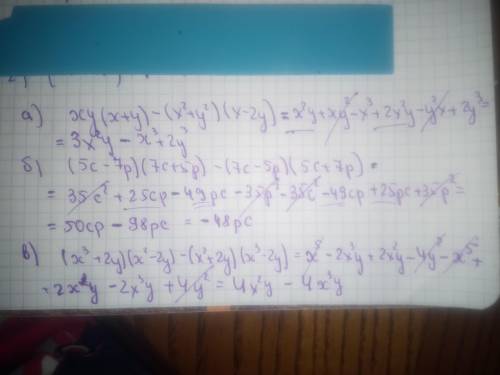 а) xy(x+y)-(x²+y²)(x-2y)=x²y+xy²-x³+2x²y-y²x+2y³=
=3x²y-x³+2y³
б) (5c-7p)(7c+5p)-(7c-5p)(5c+7p)=
=35c²+25cp-49pc-35p²-35c²-49cp+25pc+35p²=
=50cp-98pc=-48pc
в) (x³+2y)(x²-2y)-(x²+2y)(x³-2y)=x⁵-2x³y+2x²y-4y²-x⁵+
+2x²y-2x³y+4y²=4x²y-4x³y